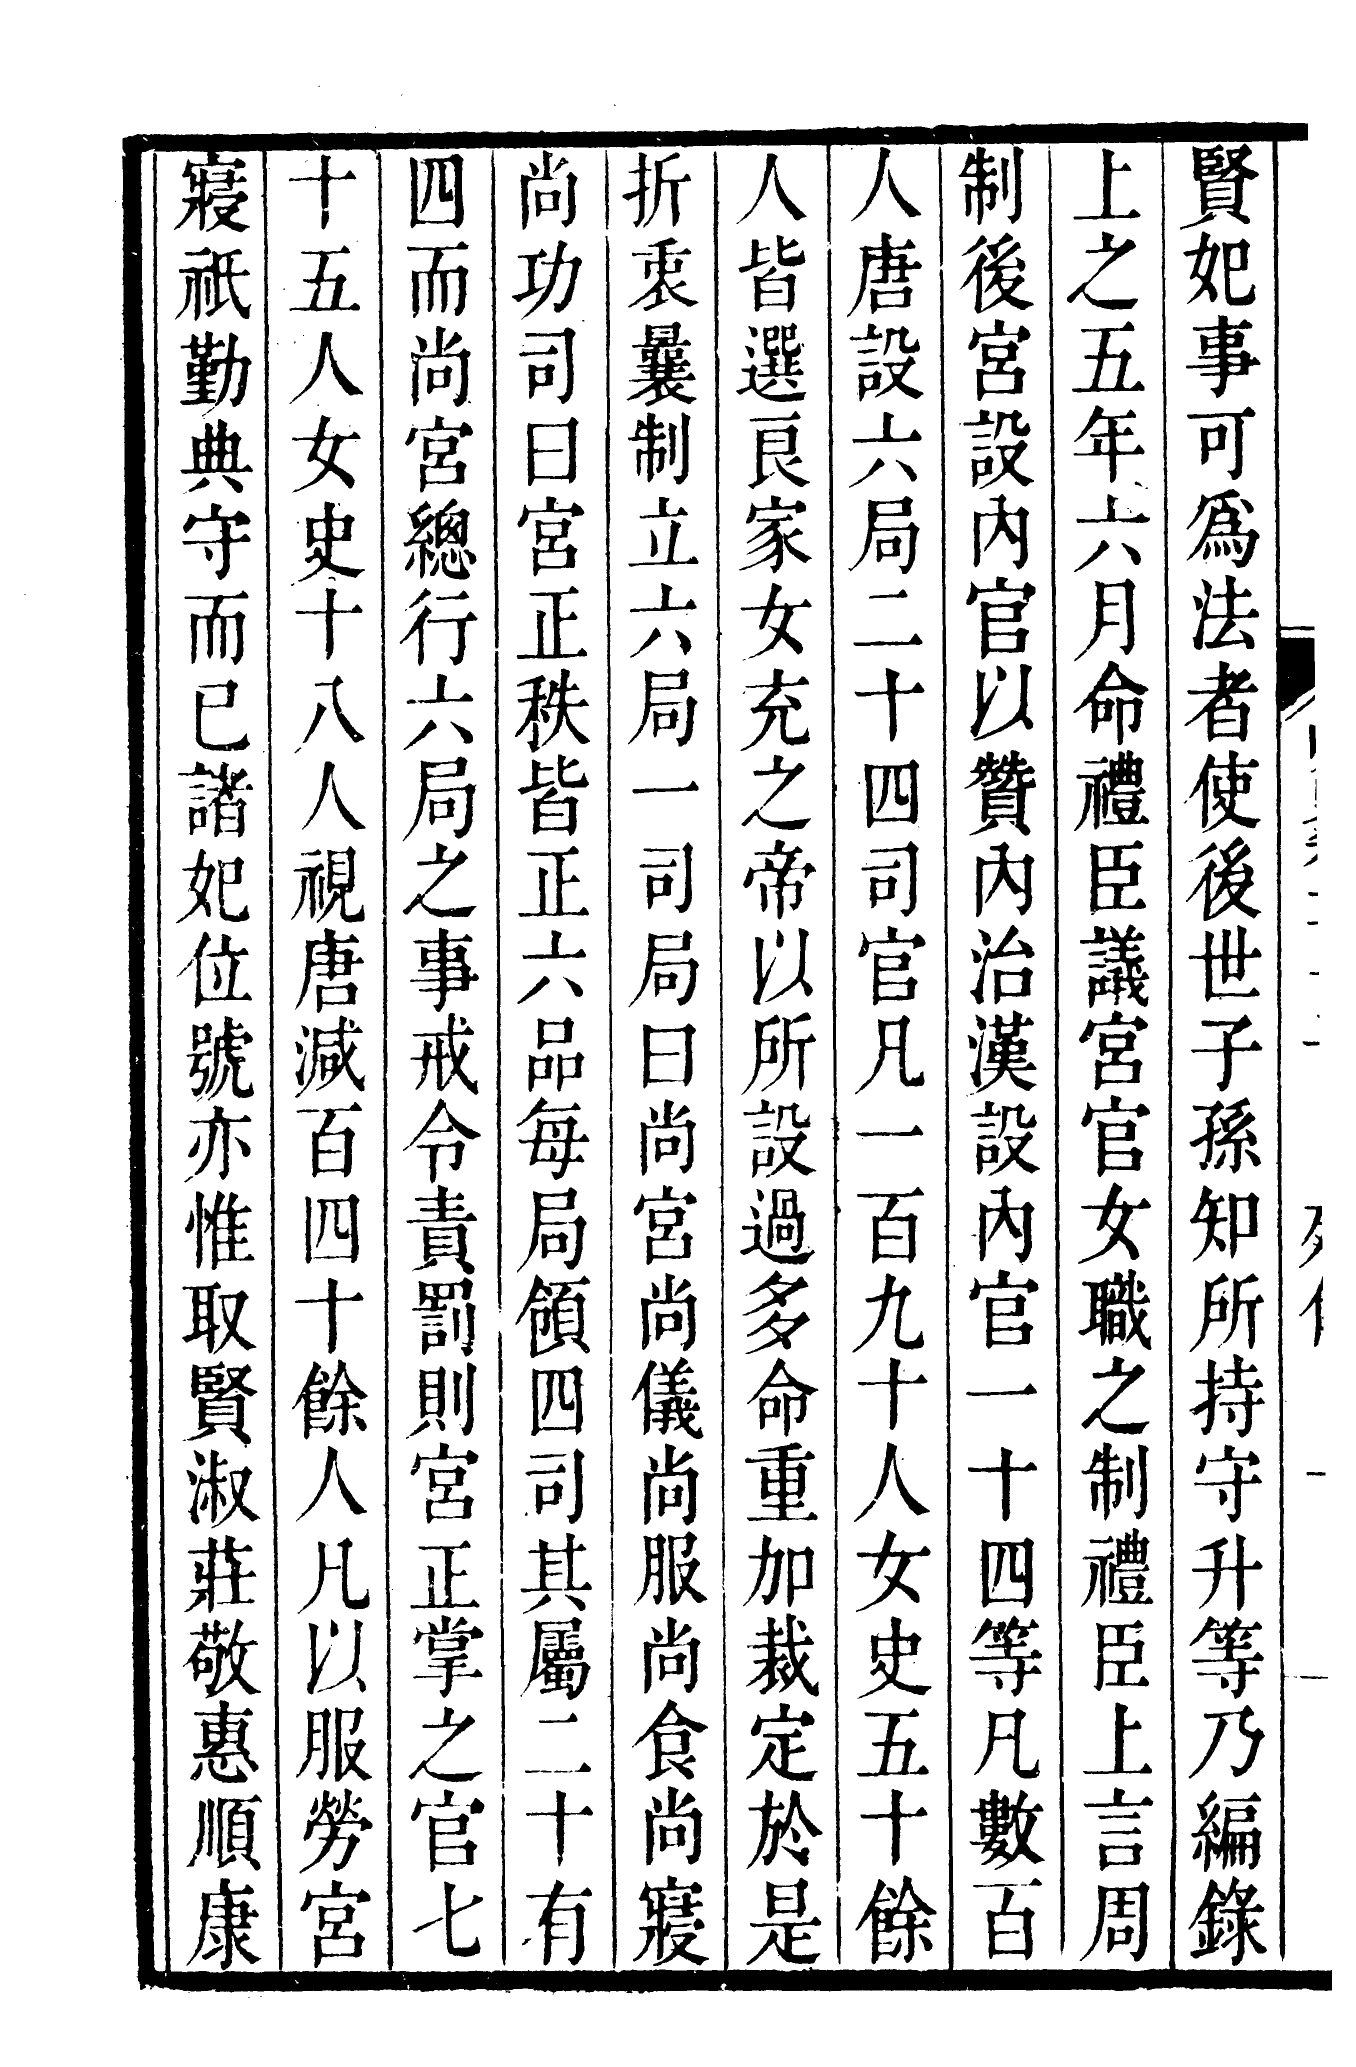 賢妃事可爲法者使後世子孫知所持守升等乃編錄
上之五年六月命禮臣議宮官女職之制禮臣上言周
制後宮設內官以贊內治漢設內官一十四等凡數百
人唐設六局二十四司官凡一百九十人女史五十餘
人皆選良家女充之帝以所設過多命重加裁定於是
折衷曩制立六局一司局曰尚宮尚儀尚服尚食尚寢
尚功司曰宮正秩皆正六品每局領四司其屬二十有
四而尚宮總行六局之事戒令責罰則宮正掌之官七
十五人女史十八人視唐減百四十餘人凡以服勞宮
寢祇勤典守而已諸妃位號亦惟取賢淑莊敬惠順康